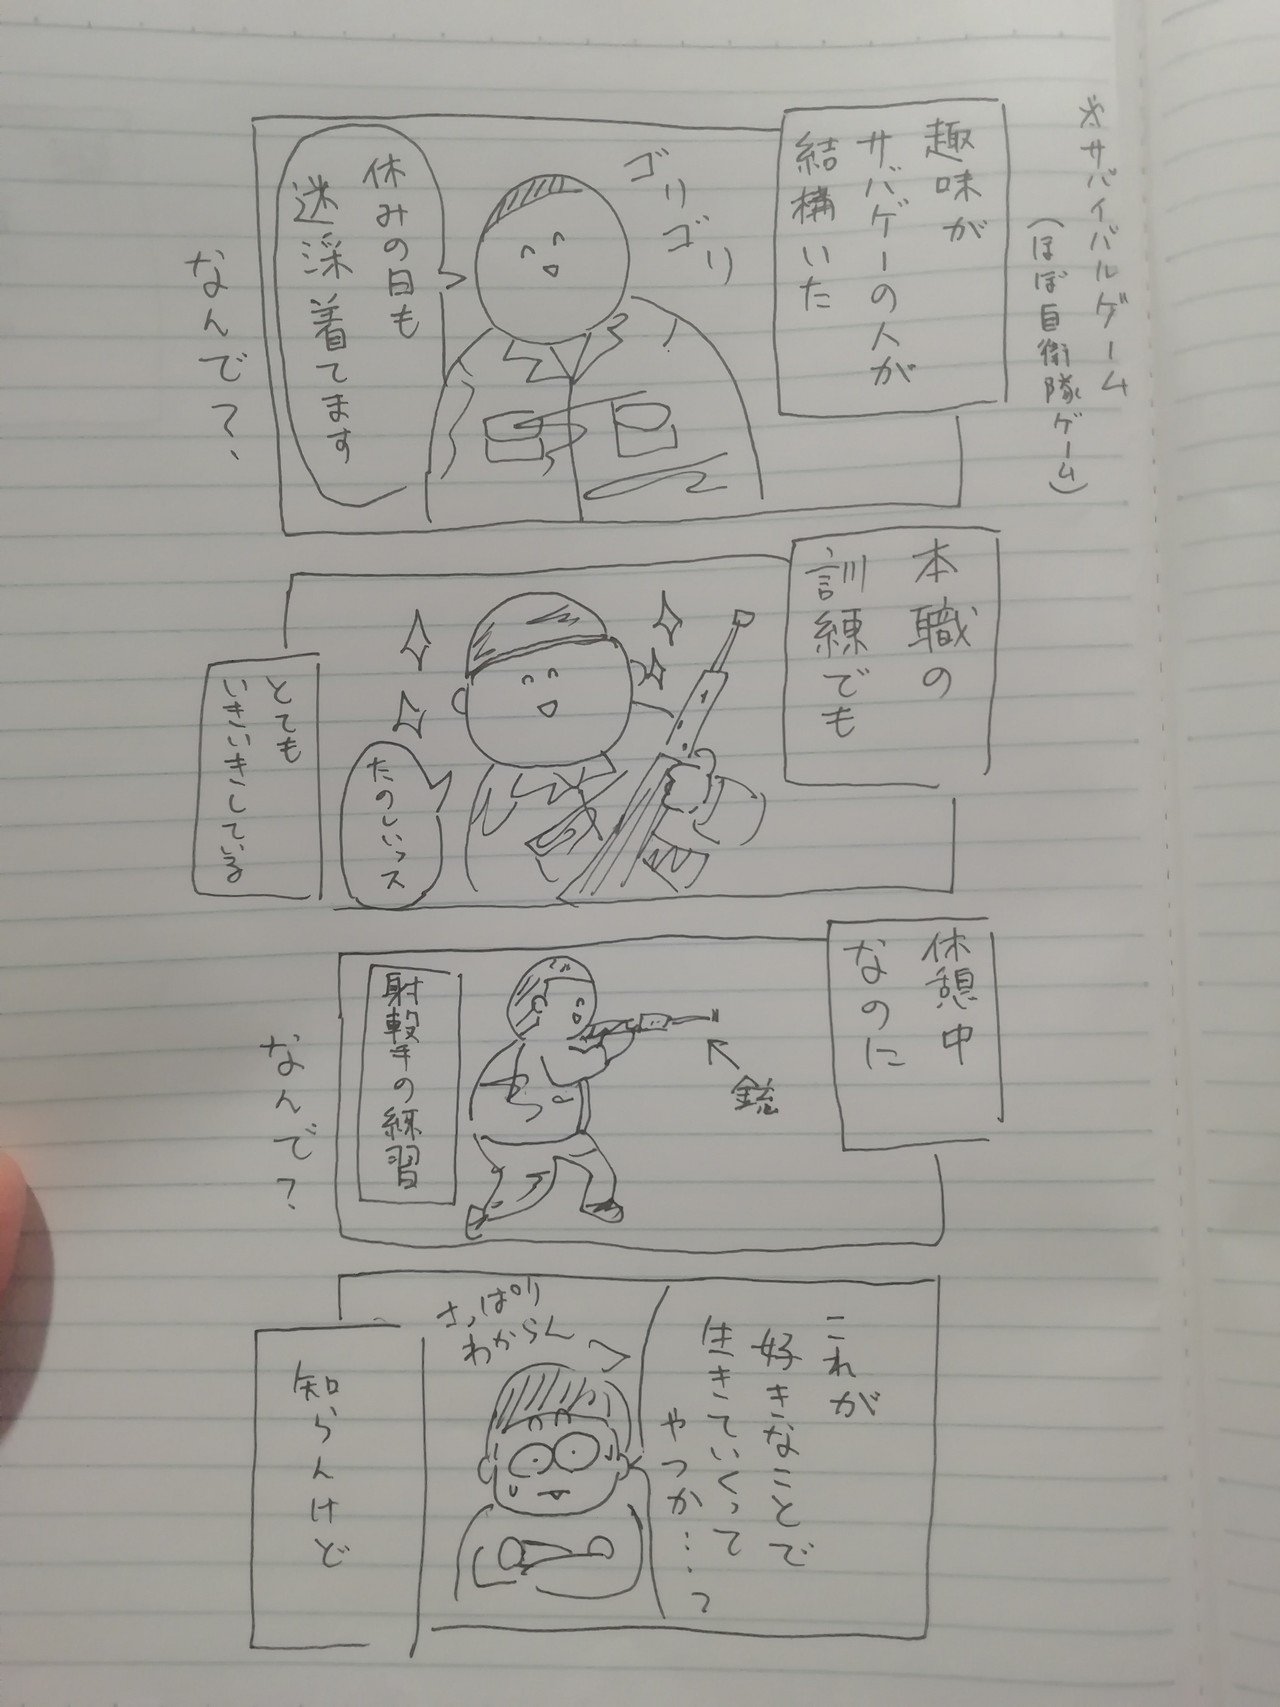 ※サバイバルゲーム
(ほぼ自衛隊ゲーム)
趣味が
サバゲーの人が
結構いた
ゴリゴリ
休みの日も
迷淫着てます
なんで?
本職の
訓練でも
たのしいっス
とても
いきいきしている
休憩中
なのに
銃
射撃手の練習
なんで?
これが
好きなことで
生きていくって
やつか…?
さっぱり
わからん
知らんけど